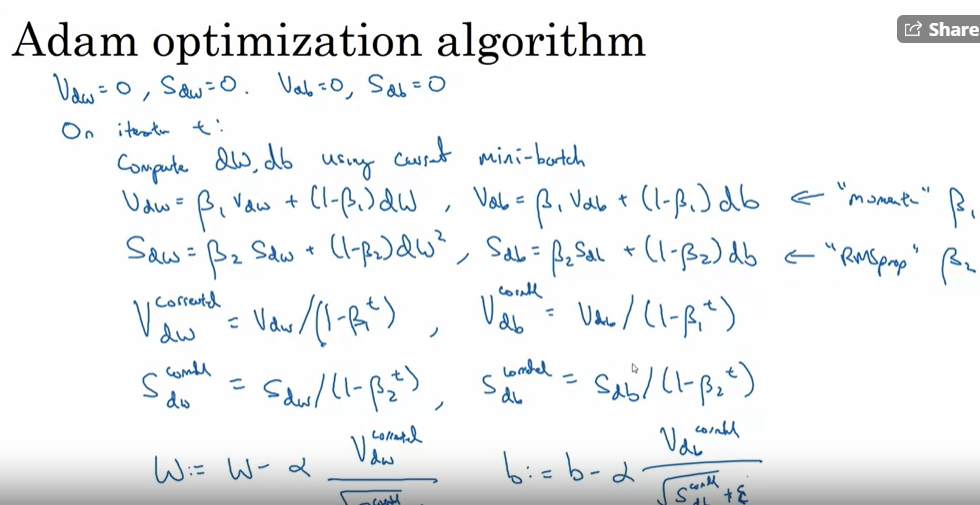 Share
Adam optimization algorithm
V_dw = 0, S_dw = 0. V_db = 0, S_db = 0
On iteration t:
Compute dW, db using current mini-batch
V_dw = β₁ V_dw + (1-β₁) dW, V_db = β₁ V_db + (1-β₁) db ← "momentum" β₁
S_dw = β₂ S_dw + (1-β₂) dW², S_db = β₂ S_db + (1-β₂) db ← "RMSprop" β₂
V_dw^corrected = V_dw / (1-β₁^t), V_db^corrected = V_db / (1-β₁^t)
S_dw^corrected = S_dw / (1-β₂^t), S_db^corrected = S_db / (1-β₂^t)
W := W - α V_dw^corrected / √S^corrected b := b - α V_db^corrected / √S_db^corrected + ε